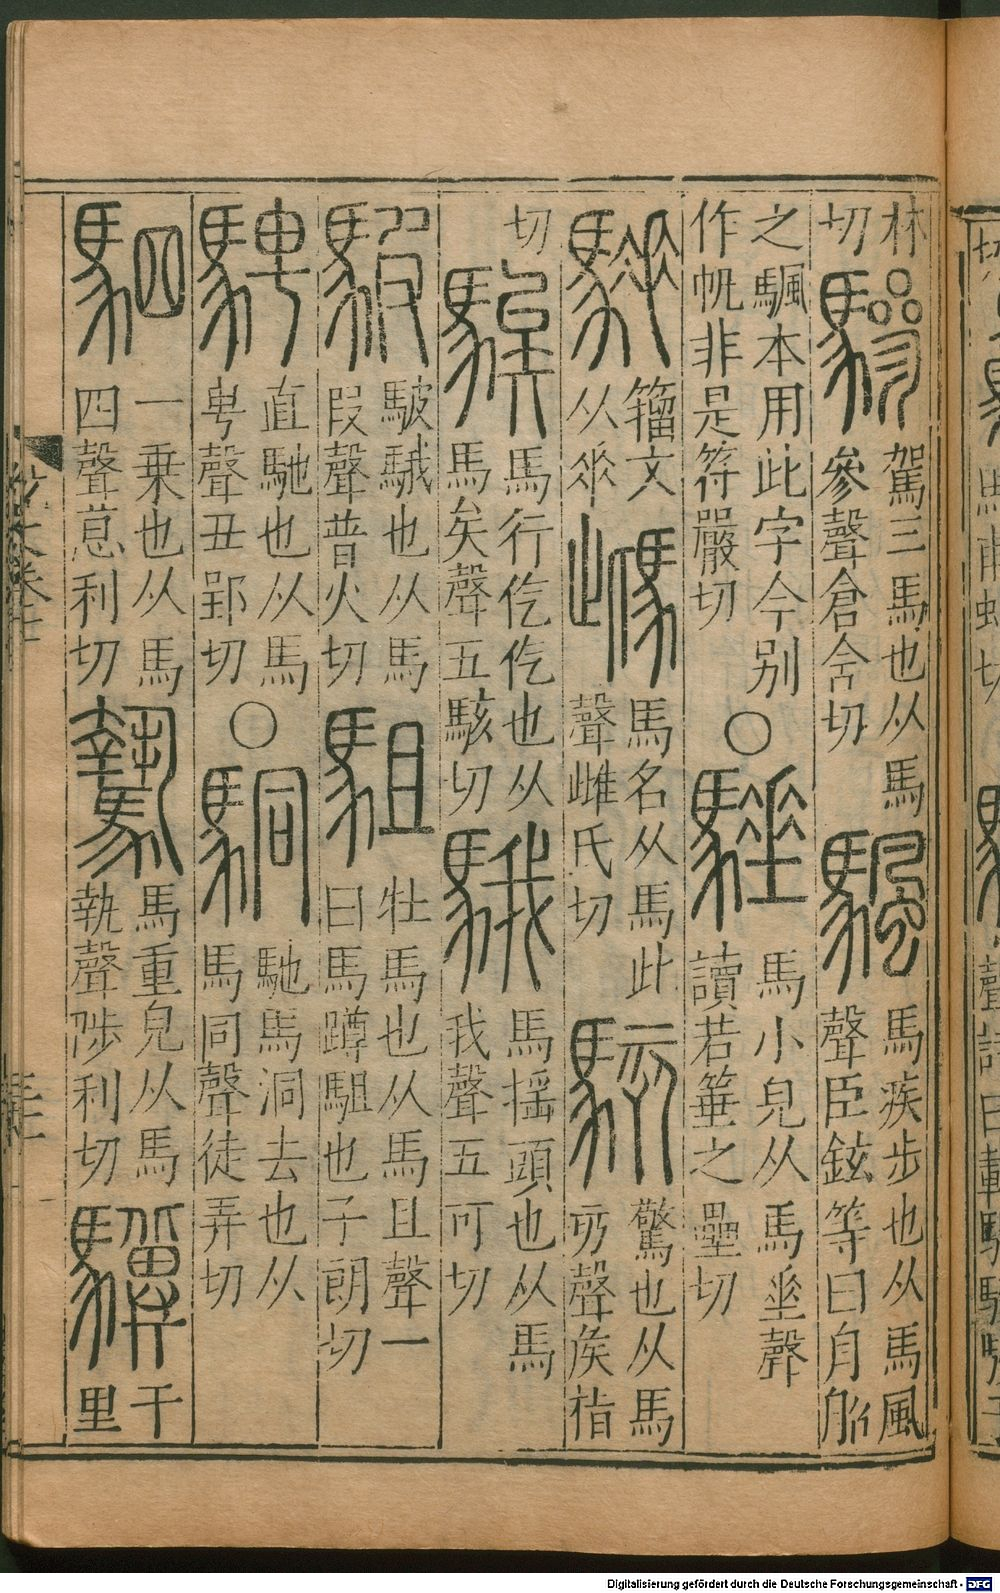 林切驂駕三馬也从馬參聲倉含切颿馬疾步也从馬風聲臣鉉等曰舟船
之颿本用此字今别作帆非是符嚴切○𩦂馬小皃从馬垂聲讀若箠之壘切
籀文从𠂹馬名从馬此聲雌氏切駭驚也从馬亥聲矦楷
切騃馬行仡仡也从馬矣聲五駭切騀馬揺頭也从馬我聲五可切
駊駊騀也从馬皮聲普火切駔牡馬也从馬且聲一曰馬蹲駔也子朗切
騁直馳也从馬甹聲丑郢切○駧馳馬洞去也从馬同聲徒弄切
駟一乗也从馬四聲息利切騺馬重皃从馬執聲陟利切驥千里
Digitalisierung gefördert durch die Deutsche Forschungsgemeinschaft - DFG